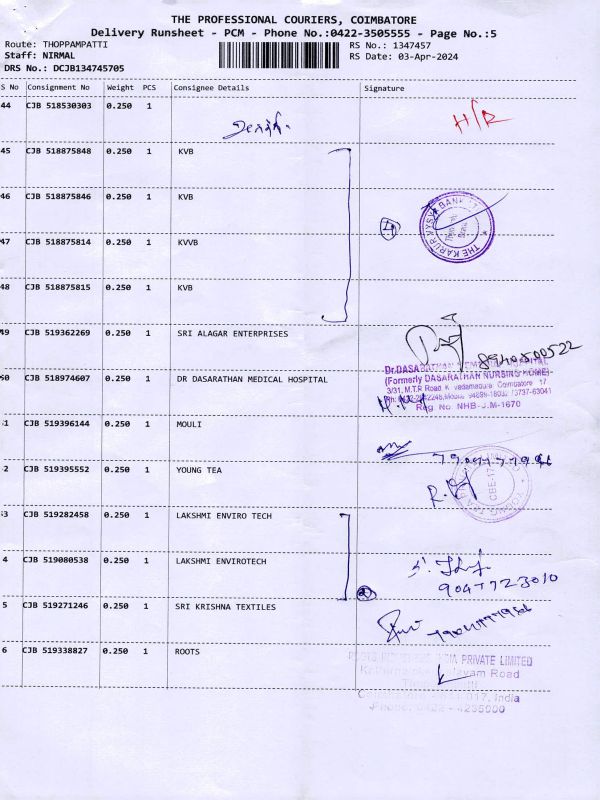 THE PROFESSIONAL COURIERS, COIMBATORE
Delivery Runsheet - PCM - Phone No.:0422-3505555 - Page No.:5
Route: THOPPAMPATTI RS No.: 1347457
Staff: NIRMAL RS Date: 03-Apr-2024
DRS No.: DCJB134745705
S No Consignment No Weight PCS Consignee Details Signature
44 CJB 518530303 0.250 1
H/R
45 CJB 518875848 0.250 1 KVB
46 CJB 518875846 0.250 1 KVB
4 THE KARUR VYSYA BANK
47 CJB 518875814 0.250 1 KVVB
48 CJB 518875815 0.250 1 KVB
49 CJB 519362269 0.250 1 SRI ALAGAR ENTERPRISES
50 CJB 518974607 0.250 1 DR DASARATHAN MEDICAL HOSPITAL
(Formerly DASARATHAN NURSING HOME)
Reg No NHB
1 CJB 519396144 0.250 1 MOULI
2 CJB 519395552 0.250 1 YOUNG TEA
CBE-17
3 CJB 519282458 0.250 1 LAKSHMI ENVIRO TECH
4 CJB 519080538 0.250 1 LAKSHMI ENVIROTECH
2 9047723010
5 CJB 519271246 0.250 1 SRI KRISHNA TEXTILES
6 CJB 519338827 0.250 1 ROOTS
PRIVATE LIMITED
Road
017, India
Phone: 0422 - 4235000